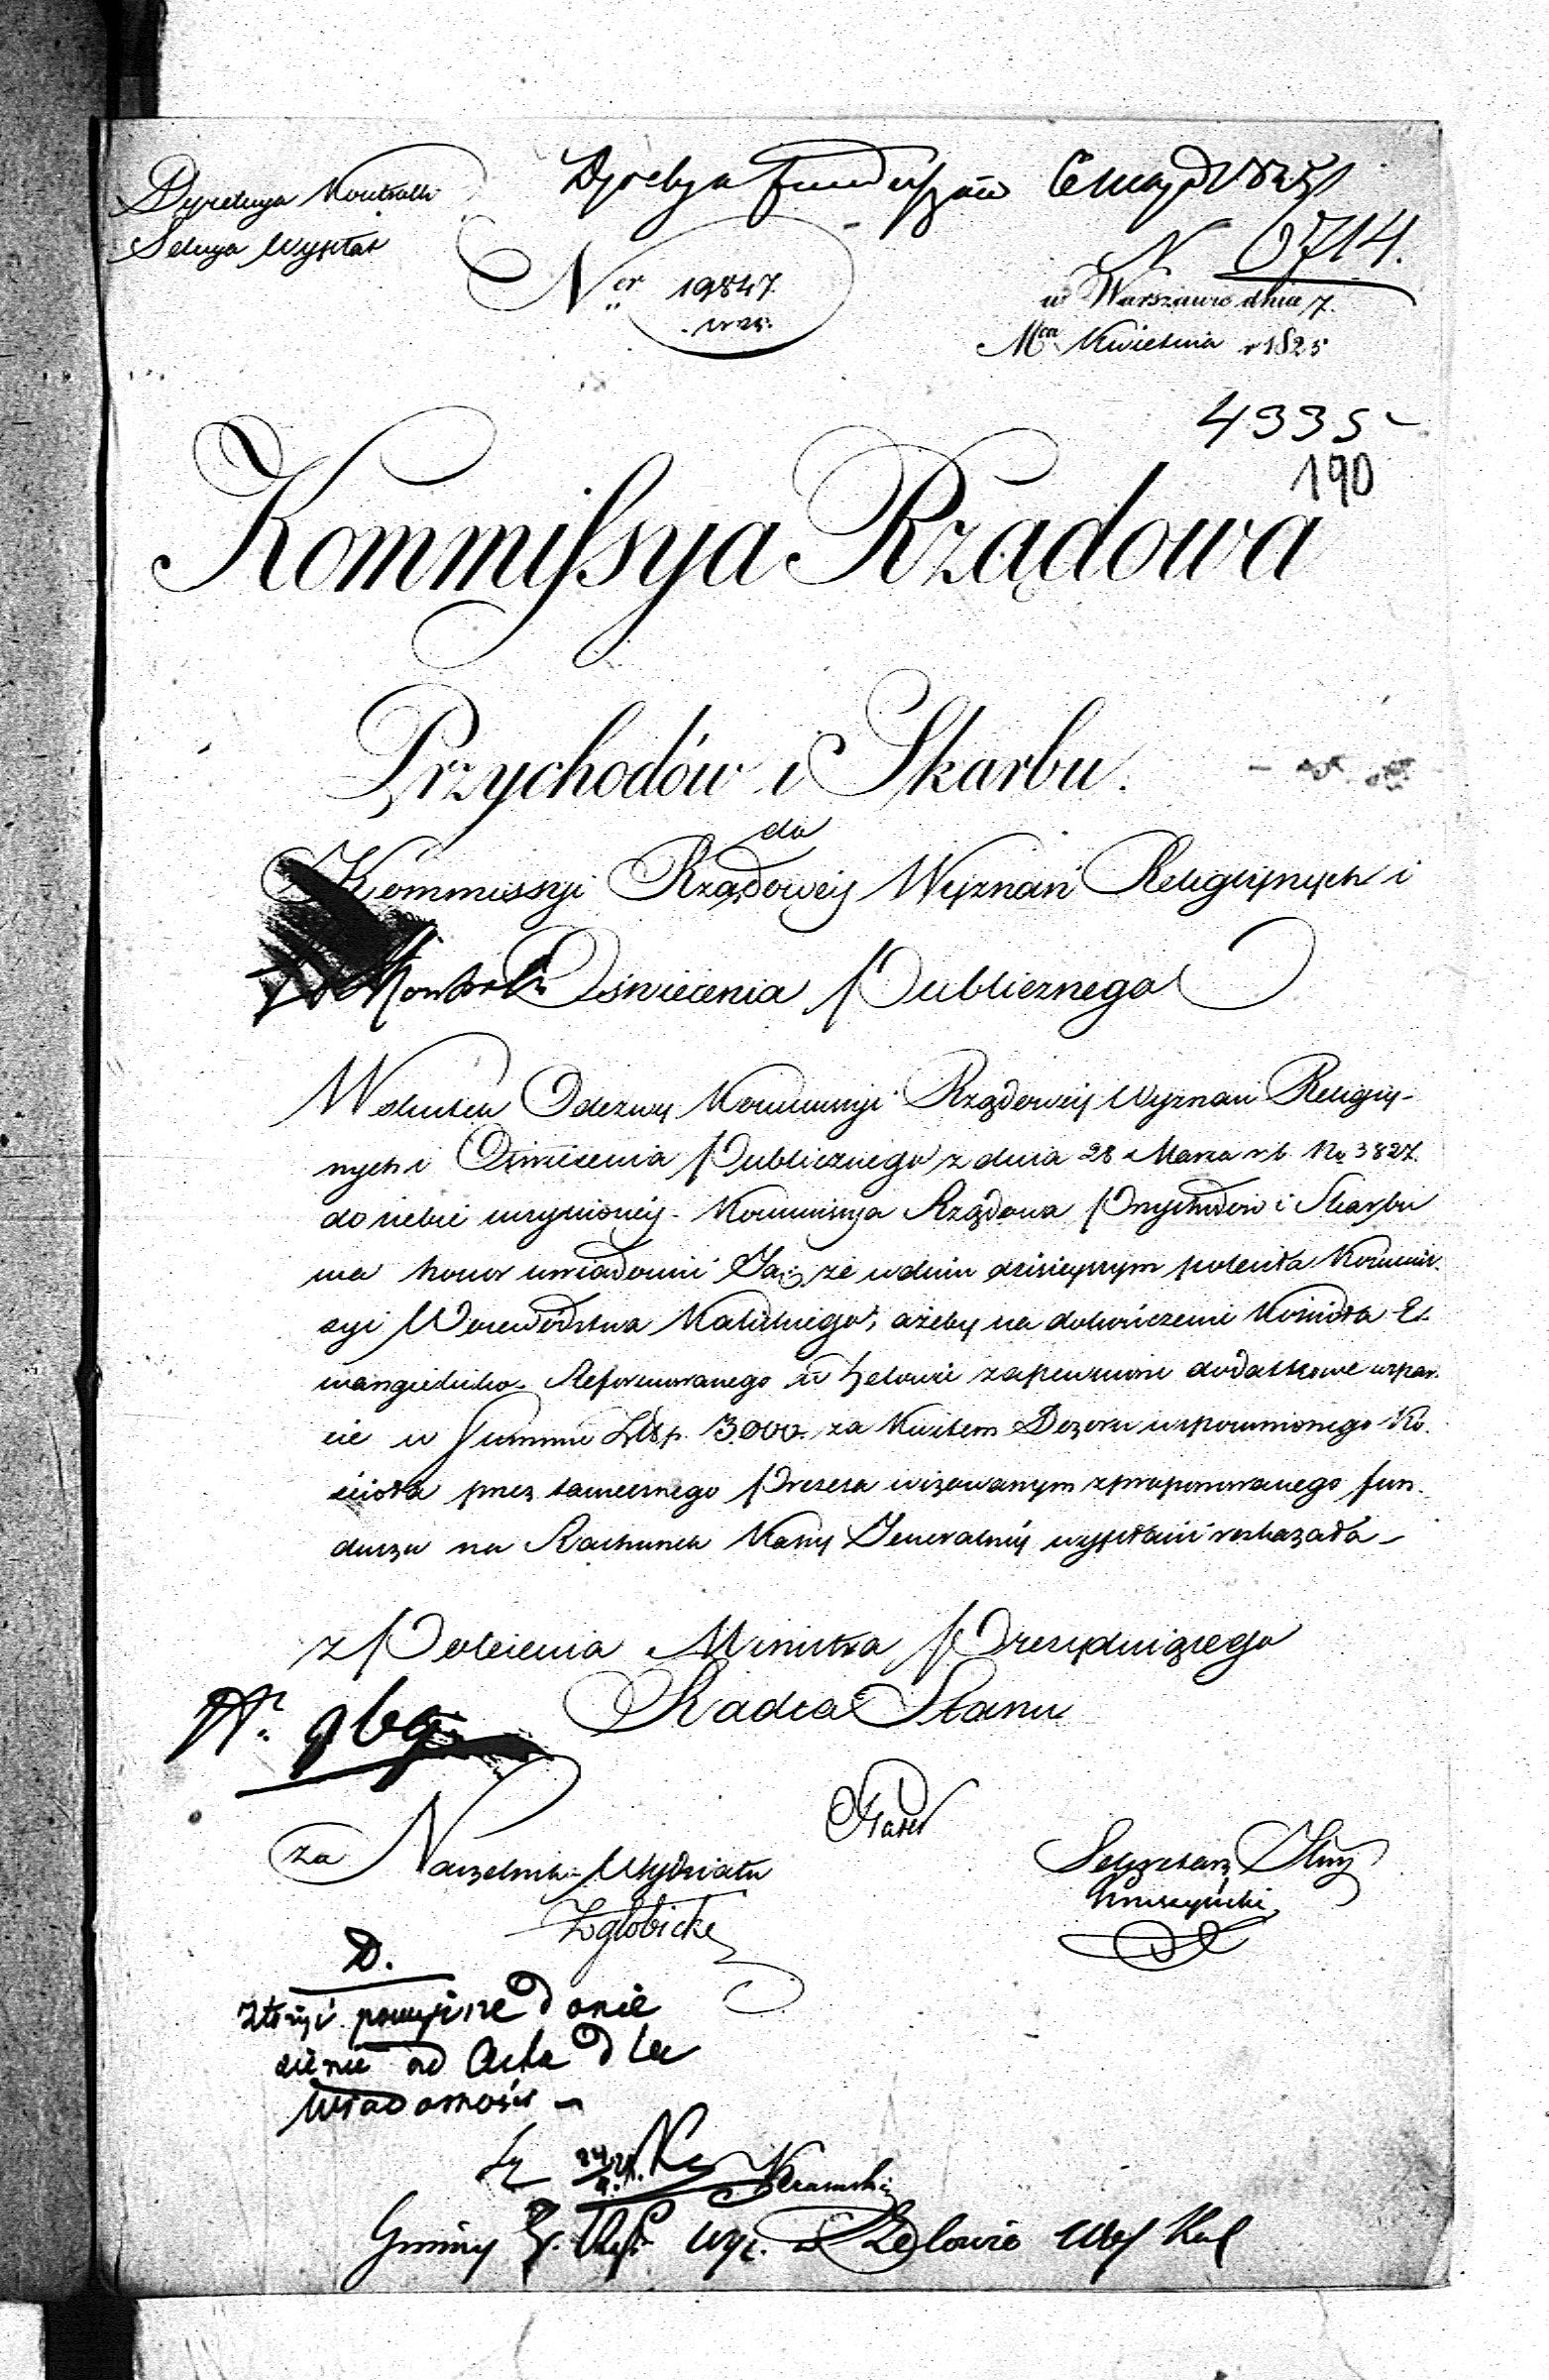 Dyrekcya Kontrolli
Sekcya Wypłat
Dyrekcya Funduszów
N 6714.
Ner 19847.
w Warszawie dnia 7.
Mca Kwietnia r 1825
4335
190
Kommissya Rządowa
Przychodów i Skarbu.
do
Kommissyi Rządowéy Wyznań Religiynych i
Oświecenia Publicznego
Wskutku Odezwy Kommissyi Rządowéy Wyznań Religiy-
nych i Oświecenia Publicznego z dnia 28 Marca r. b. No 3827.
do siebie uczynionéy. Kommissya Rządowa Przychodów i Skarbu
ma honor uwiadomić Ją; że w dniu dzisieyszym poleciła Kommis-
syi Woiewództwa Kaliskiego, ażeby na dokończenie Kościoła E-
wangielicko. Reformowanego w Zelowie zapewnione dodatkowe wspar-
cie w Summie Złp. 3.000. za Kwitem Dozoru wspomnionego Ko-
ścioła przez tamecznego Prezesa wizowanym z proponowanego fun-
duszu na Rachunek Kassy Jeneralnéy wypłacić rozkazała -
z Polecenia Ministra Prezyduiącego
Radca Stanu
Nr. 969.
za Naczelnik Wydziału
Zgłobicki
Sekretarz Jlny
Kruszyński
D.
Złożyć powyższe donie
sienie ad Acta dla
Wiadomości -
Gminy E. Ref. wyz. w Zelowie Woj Kal